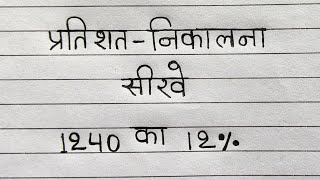 प्रतिशत-निकालना
सीखे
1240 का 12%